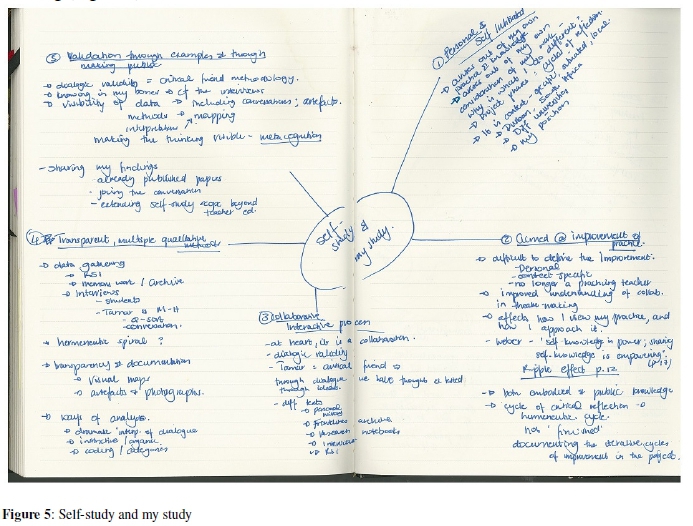 ① Personal & Self Initiated
→ arises out of my own practice & knowledge
→ arises out of my own consideration of my work - why is what I do different?
→ Project phases: cycles of reflection
→ It is context-specific, situated, local
→ Durban, South Africa
→ Diff university
→ My position
self-study & my study.
② Aimed @ improvement of practice.
→ difficult to define the Improvement.
- Personal
- context specific
- no longer a practicing teacher
→ improved understanding of collab. in theatre making
→ effects how I view my practice, and how I approach it.
- Weber - 'self knowledge is power; sharing self-knowledge is empowering' (p.12)
Ripple effect p.12
→ both embodied & public knowledge
→ cycle of critical reflection →
hermeneutic cycle.
has 'finished'
documenting the iterative cycles of improvement in the project.
③ Collaborative
Interactive process
- at heart, it is a collaboration.
- dialogic validity
- Tamar = critical friend →
through dialogue we have thought & lated
through ideas.
- diff texts
→ personal
→ practices archive
→ research notebooks
→ interviews
→ RSI
④ Transparent, multiple qualitative methods
→ data gathering
→ RSI
→ memory work / archive
→ Interviews
- students
- Tamar & M-H
- Q-sort
- conversation.
→ hermeneutic spiral?
→ transparency & documentation
→ visual maps
→ artefacts & photographs.
→ ways of analysis.
→ dramatic interp. of dialogue
→ instinctive / organic
→ coding / categories
⑤ Validation through examples & through making public
→ dialogic validity = critical friend methodology.
→ knowing in my bones → cf the interviews
→ visibility of data → including conversations; artefacts.
methods → mapping
interpretation
making the thinking visible - metacognition
- sharing my findings
- already published papers
- joining the conversation
- extending self-study scope beyond teacher ed.
Figure 5: Self-study and my study